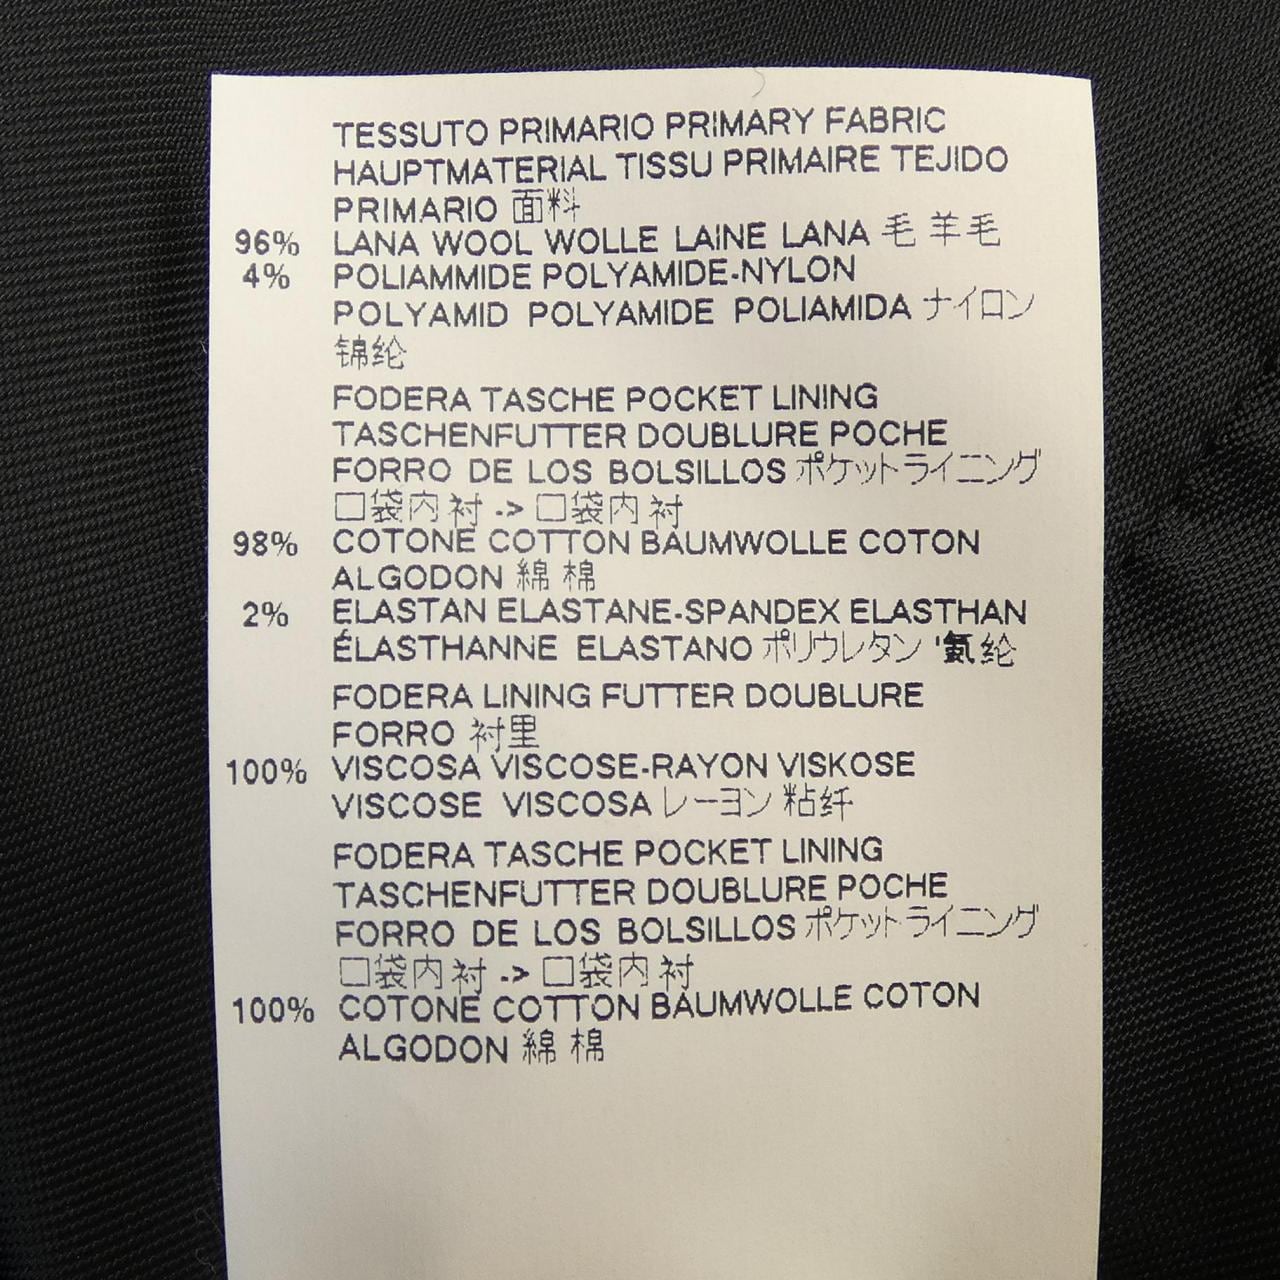 TESSUTO PRIMARIO PRIMARY FABRIC
HAUPTMATERIAL TISSU PRIMAIRE TEJIDO
PRIMARIO 面料
96% LANA WOOL WOLLE LAINE LANA 毛 羊毛
4% POLIAMMIDE POLYAMIDE-NYLON
POLYAMID POLYAMIDE POLIAMIDA ナイロン
锦纶
FODERA TASCHE POCKET LINING
TASCHENFUTTER DOUBLURE POCHE
FORRO DE LOS BOLSILLOS ポケットライニング
口袋内衬 -> 口袋内衬
98% COTONE COTTON BAUMWOLLE COTON
ALGODON 綿 棉
2% ELASTAN ELASTANE-SPANDEX ELASTHAN
ÉLASTHANNE ELASTANO ポリウレタン '氨纶
FODERA LINING FUTTER DOUBLURE
FORRO 衬里
100% VISCOSA VISCOSE-RAYON VISKOSE
VISCOSE VISCOSA レーヨン 粘纤
FODERA TASCHE POCKET LINING
TASCHENFUTTER DOUBLURE POCHE
FORRO DE LOS BOLSILLOS ポケットライニング
口袋内衬 -> 口袋内衬
100% COTONE COTTON BAUMWOLLE COTON
ALGODON 綿 棉